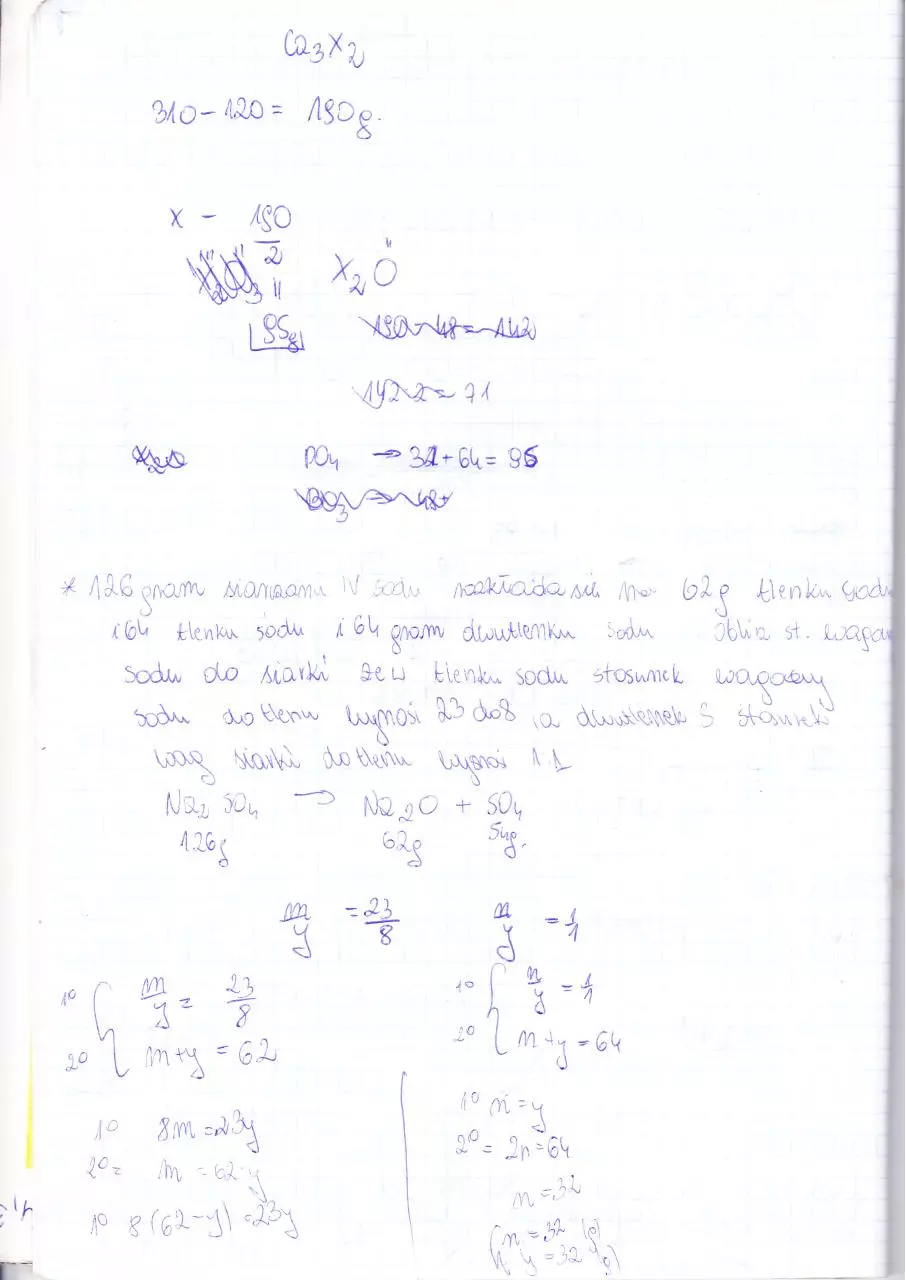 Ca3X2
310-120 = 190g.
X - 190
2
"
X2O
|95g|
190-48=142
142:2=71
X2O
PO4 -> 31+64=95
BO3 -> 48+
* 126 gram siarczanu IV sodu rozkłada się na 62g tlenku sodu
i 64 tlenku sodu i 64 gram dwutlenku sodu Oblicz st. wagow
sodu do siarki że w tlenku sodu stosunek wagowy
sodu do tlenu wynosi 23 do 8, a dwutlenek S stosunek
wag siarki do tlenu wynosi 1:1
Na2SO4 -> Na2O + SO4
126g 62g 54g.
m/y = 23/8 n/y = 1/1
1° { m/y = 23/8
2° m+y = 62
1° { n/y = 1/1
2° n+y = 64
1° 8m=23y
2°= m = 62-y
1° 8(62-y)=23y
1° n=y
2°= 2n=64
n=32
{ n=32 (g)
y=32 (g)